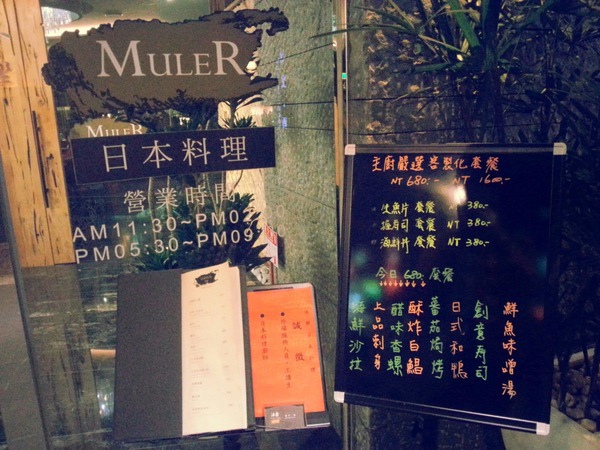 MULER
MULER
日本料理
營業時間
AM11:30~PM02
PM05:30~PM09
誠徵
主廚嚴選客製化套餐
NT 680.- NT 1600.-
生魚片 套餐 NT 380.-
握壽司 套餐 NT 380.-
海鮮丼 套餐 NT 380.-
今日 680.- 套餐
鮮魚味噌湯
創意壽司
日式和鴨
蕃茄焗烤
酥炸白鯧
醋味香螺
上品刺身
海鮮沙拉